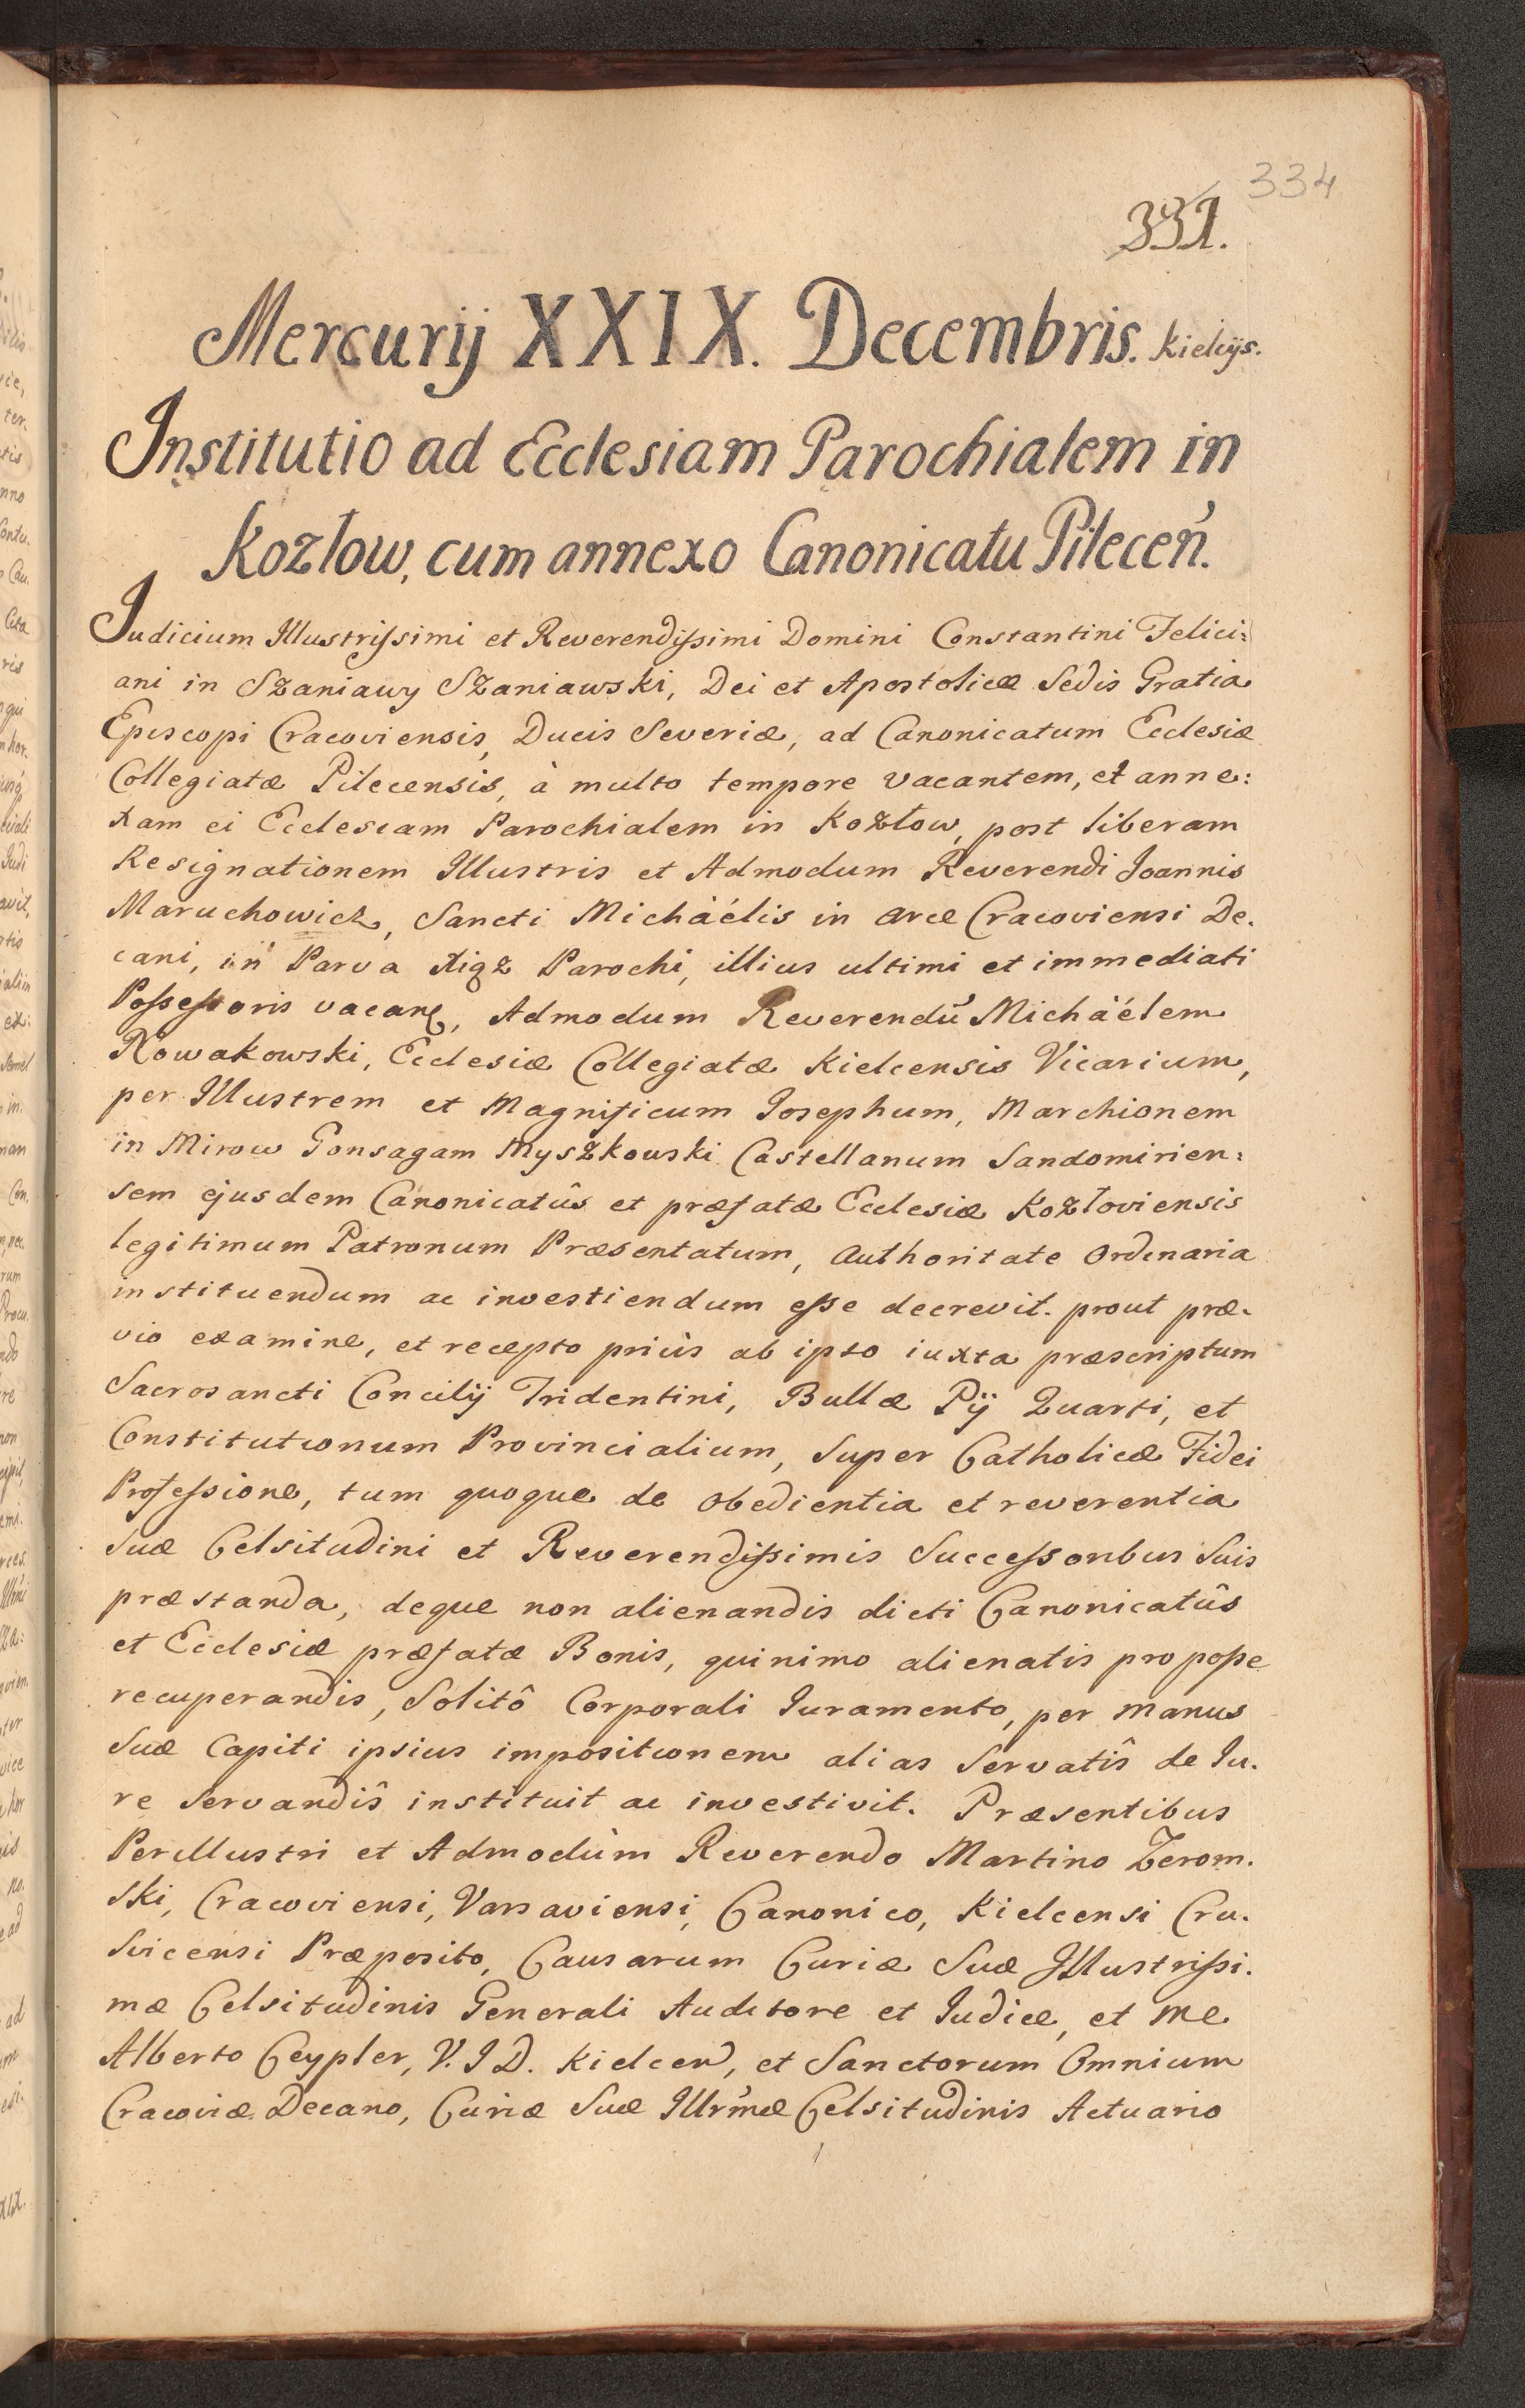 334
331.
Mercurij XXIX. Decembris. Kielcijs.
Institutio ad Ecclesiam Parochialem in
Kozłow, cum annexo Canonicatu Pileceń.
Judicium Illustrissimi et Reverendissimi Domini Constantini Felici:
ani in Szaniawy Szaniawski, Dei et Apostolicæ Sedis Gratia
Episcopi Cracoviensis, Ducis Severiæ, ad Canonicatum Ecclesiæ
Collegiatæ Pilecensis, à multo tempore vacantem, et anne:
xam ei Ecclesiam Parochialem in Kozłow, post liberam
Resignationem Illustris et Admodum Reverendi Joannis
Maruchowicz, Sancti Michäélis in arce Cracoviensi De.
cani, in Parva Xiąz Parochi, illius ultimi et immediati
Possessoris vacan, Admodum Reverendū Michäélem
Nowakowski, Ecclesiæ Collegiatæ Kielcensis Vicarium,
per Illustrem et Magnificum Josephum, Marchionem
in Mirow Gonsagam Myszkowski Castellanum Sandomirien:
sem ejusdem Canonicatûs et præfatæ Ecclesiæ Kozłoviensis
legitimum Patronum Præsentatum, authoritate Ordinaria
instituendum ac investiendum esse decrevit. prout præ.
vio examine, et recepto priùs ab ipso iuxta præscriptum
Sacrosancti Concilij Tridentini, Bullæ Pij Quarti, et
Constitutionum Provincialium, super Catholicæ Fidei
Professione, tum quoque de obedientia et reverentia
Suæ Celsitudini et Reverendissimis Successoribus Suis
præstanda, deque non alienandis dicti Canonicatûs
et Ecclesiæ præfatæ Bonis, quinimo alienatis pro posse
recuperandis, Solitô Corporali Juramento, per manus
Suæ Capiti ipsius impositionem alias Servatîs de Ju.
re Servandîs instituit ac investivit. Præsentibus
Perillustri et Admodùm Reverendo Martino Żerom.
ski, Cracoviensi, Varsaviensi, Canonico, Kielcensi Cru.
svicensi Præposito, Causarum Curiæ Suæ Illustrissi.
mæ Celsitudinis Generali Auditore et Judice, et me
Alberto Ceypler, V. J D. Kielcen, et Sanctorum Omnium
Cracoviæ Decano, Curiæ Suæ Illrmæ Celsitudinis Actuario